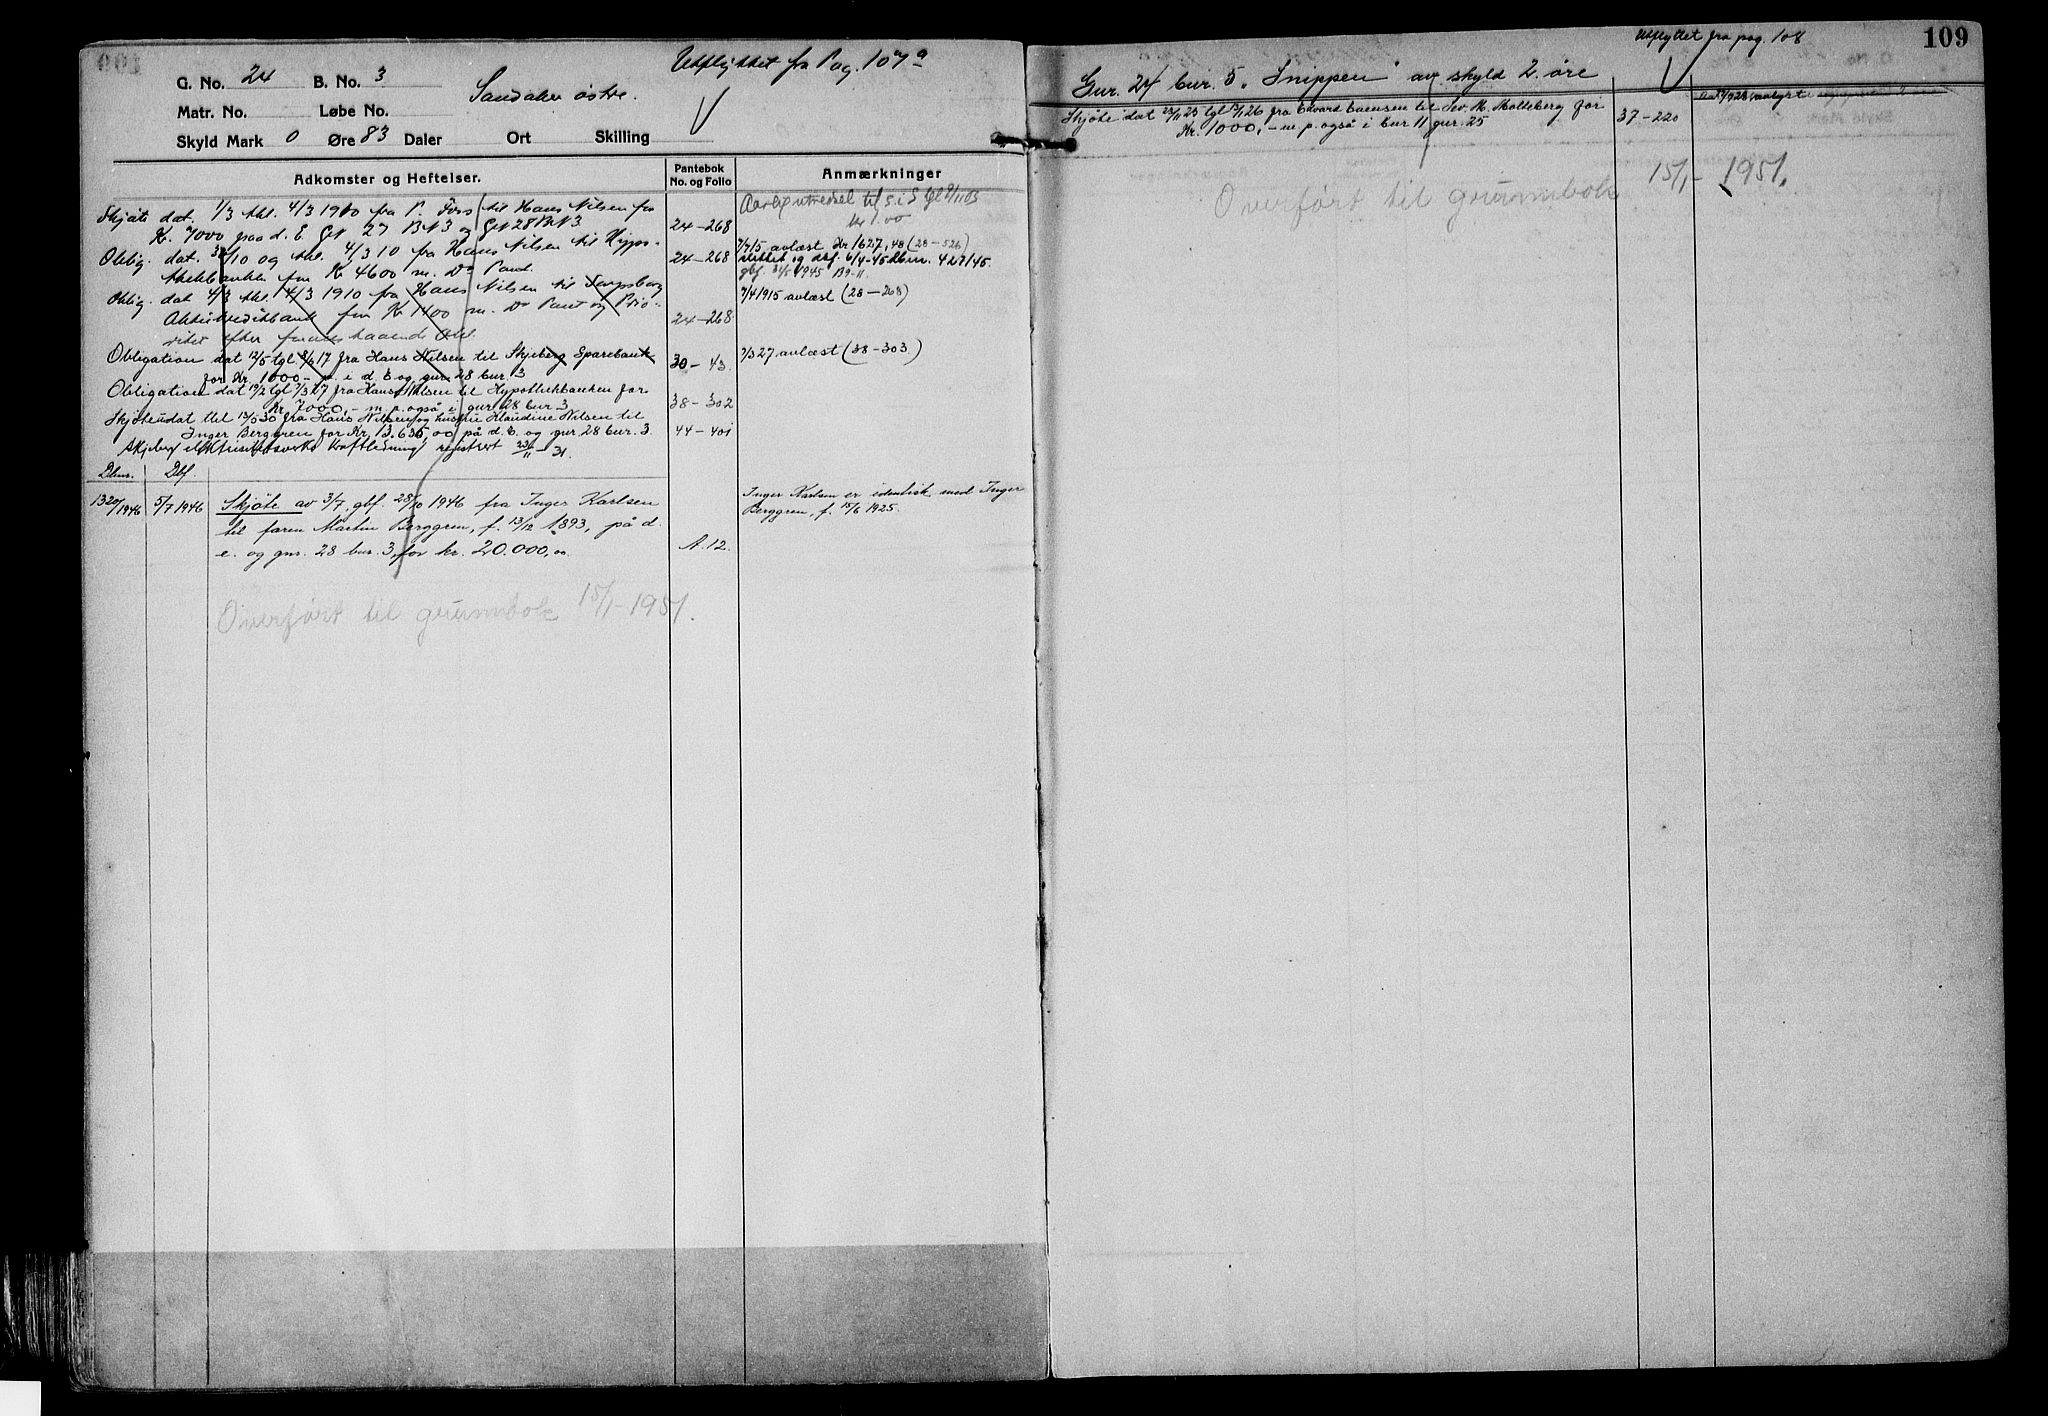 Utflyttet fra Pag. 107a
G. No. 24 B. No. 3 Sandaker östre.
Matr. No. Løbe No.
Skyld Mark 0 Øre 83 Daler Ort Skilling
Adkomster og Heftelser. Pantebok No. og Folio Anmærkninger
Skjöte dat. 1/3 thl. 4/3 1910 fra P. Foss til Hans Nilsen for
Kr. 7000 paa d. E. GN 27 BN3 og GN 28 BN3. 24-268
Aarlig til 5 i S tgl 9/11 05
kr 1.00
Oblig. dat. 3/10 og thl. 4/3 10 fra Hans Nilsen til Hypo-
thekbanken for Kr 4600 m. Do Pant. 24-268
7/7 15 avlæst Kr 1627,48 (28-526)
slettet og dbf. 6/4-45 Dbnr. 427/45.
gbf. 1945 B9-11
Oblig. dat 4/3 thl. 4/3 1910 fra Hans Nilsen til Sarpsborg
Aktiekreditbank for Kr 1400 m. Do Pant og Prio-
ritet efter foranstaaende Obl. 24-268
7/4 1915 avlæst (28-268)
Obligation dat 12/5 tgl 8/6 17 fra Hans Nilsen til Skjeberg Sparebank
for Kr. 1000 - p. i d. E og gnr 28 bnr. 3 30-43
2/3 27 avlæst (38-303.)
Obligation dat 19/2 tgl 2/3 27 fra Hans Nilsen til Hypothekbanken for
Kr. 7000,- m. p. også i gnr 28 bnr 3 38-302
Skjøte udat tlet 13/5 30 fra Hans Nilsen og hustru Klaudine Nilsen til
Inger Berggren for Kr. 13.635,00 på d. E. og gnr 28 bnr. 3. 44-401
Skjeberg elektrisitetsverks kraftledning registrert 23/11-31.
Dbnr. Dbf.
1320/1946 5/7 1946 Skjøte av 3/7, gbf. 28/10 1946 fra Inger Karlsen
til faren Martin Berggren, f. 13/12 1893, på d.
e. og gnr. 28 bnr. 3, for kr. 20.000,00 A. 12.
Inger Karlsen er identisk med Inger
Berggren, f. 15/6 1925.
Overført til grunnbok 15/1-1951.
Utflyttet fra pag. 108
109
Gnr. 24 bnr. 5 "Snippen" av skyld 2 øre
Skjöte dat 23/11 25 tgl 5/1 26 fra Edvard Evensen til Sev. M. Molleberg for
Kr. 1000,- m. p. også i bnr 11 gnr. 25 37-220
Overført til grunnbok 15/1-1951.